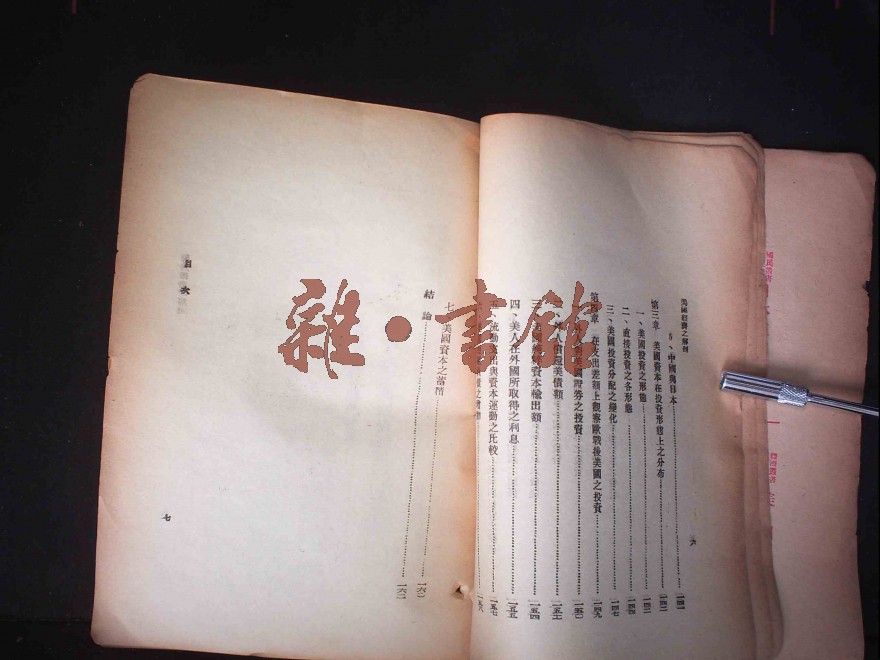 美國經濟之解剖
5、中國與日本……一四一
第三章 美國資本在投資形態上之分布……一四二
一、美國投資之形態……一四二
二、直接投資之各形態……一四四
三、美國投資分配之變化……一四七
第四章 在支出差額上觀察歐戰後美國之投資……一四九
國證券之投資……一五〇
美債額……一五一
三、美國純粹資本輸出額……一五四
四、美人在外國所取得之利息……一五五
五、流動支出與資本運動之比較……一五七
六
七、美國資本之蓄積……一六〇
結論……一六一
目次
七
雜·書館